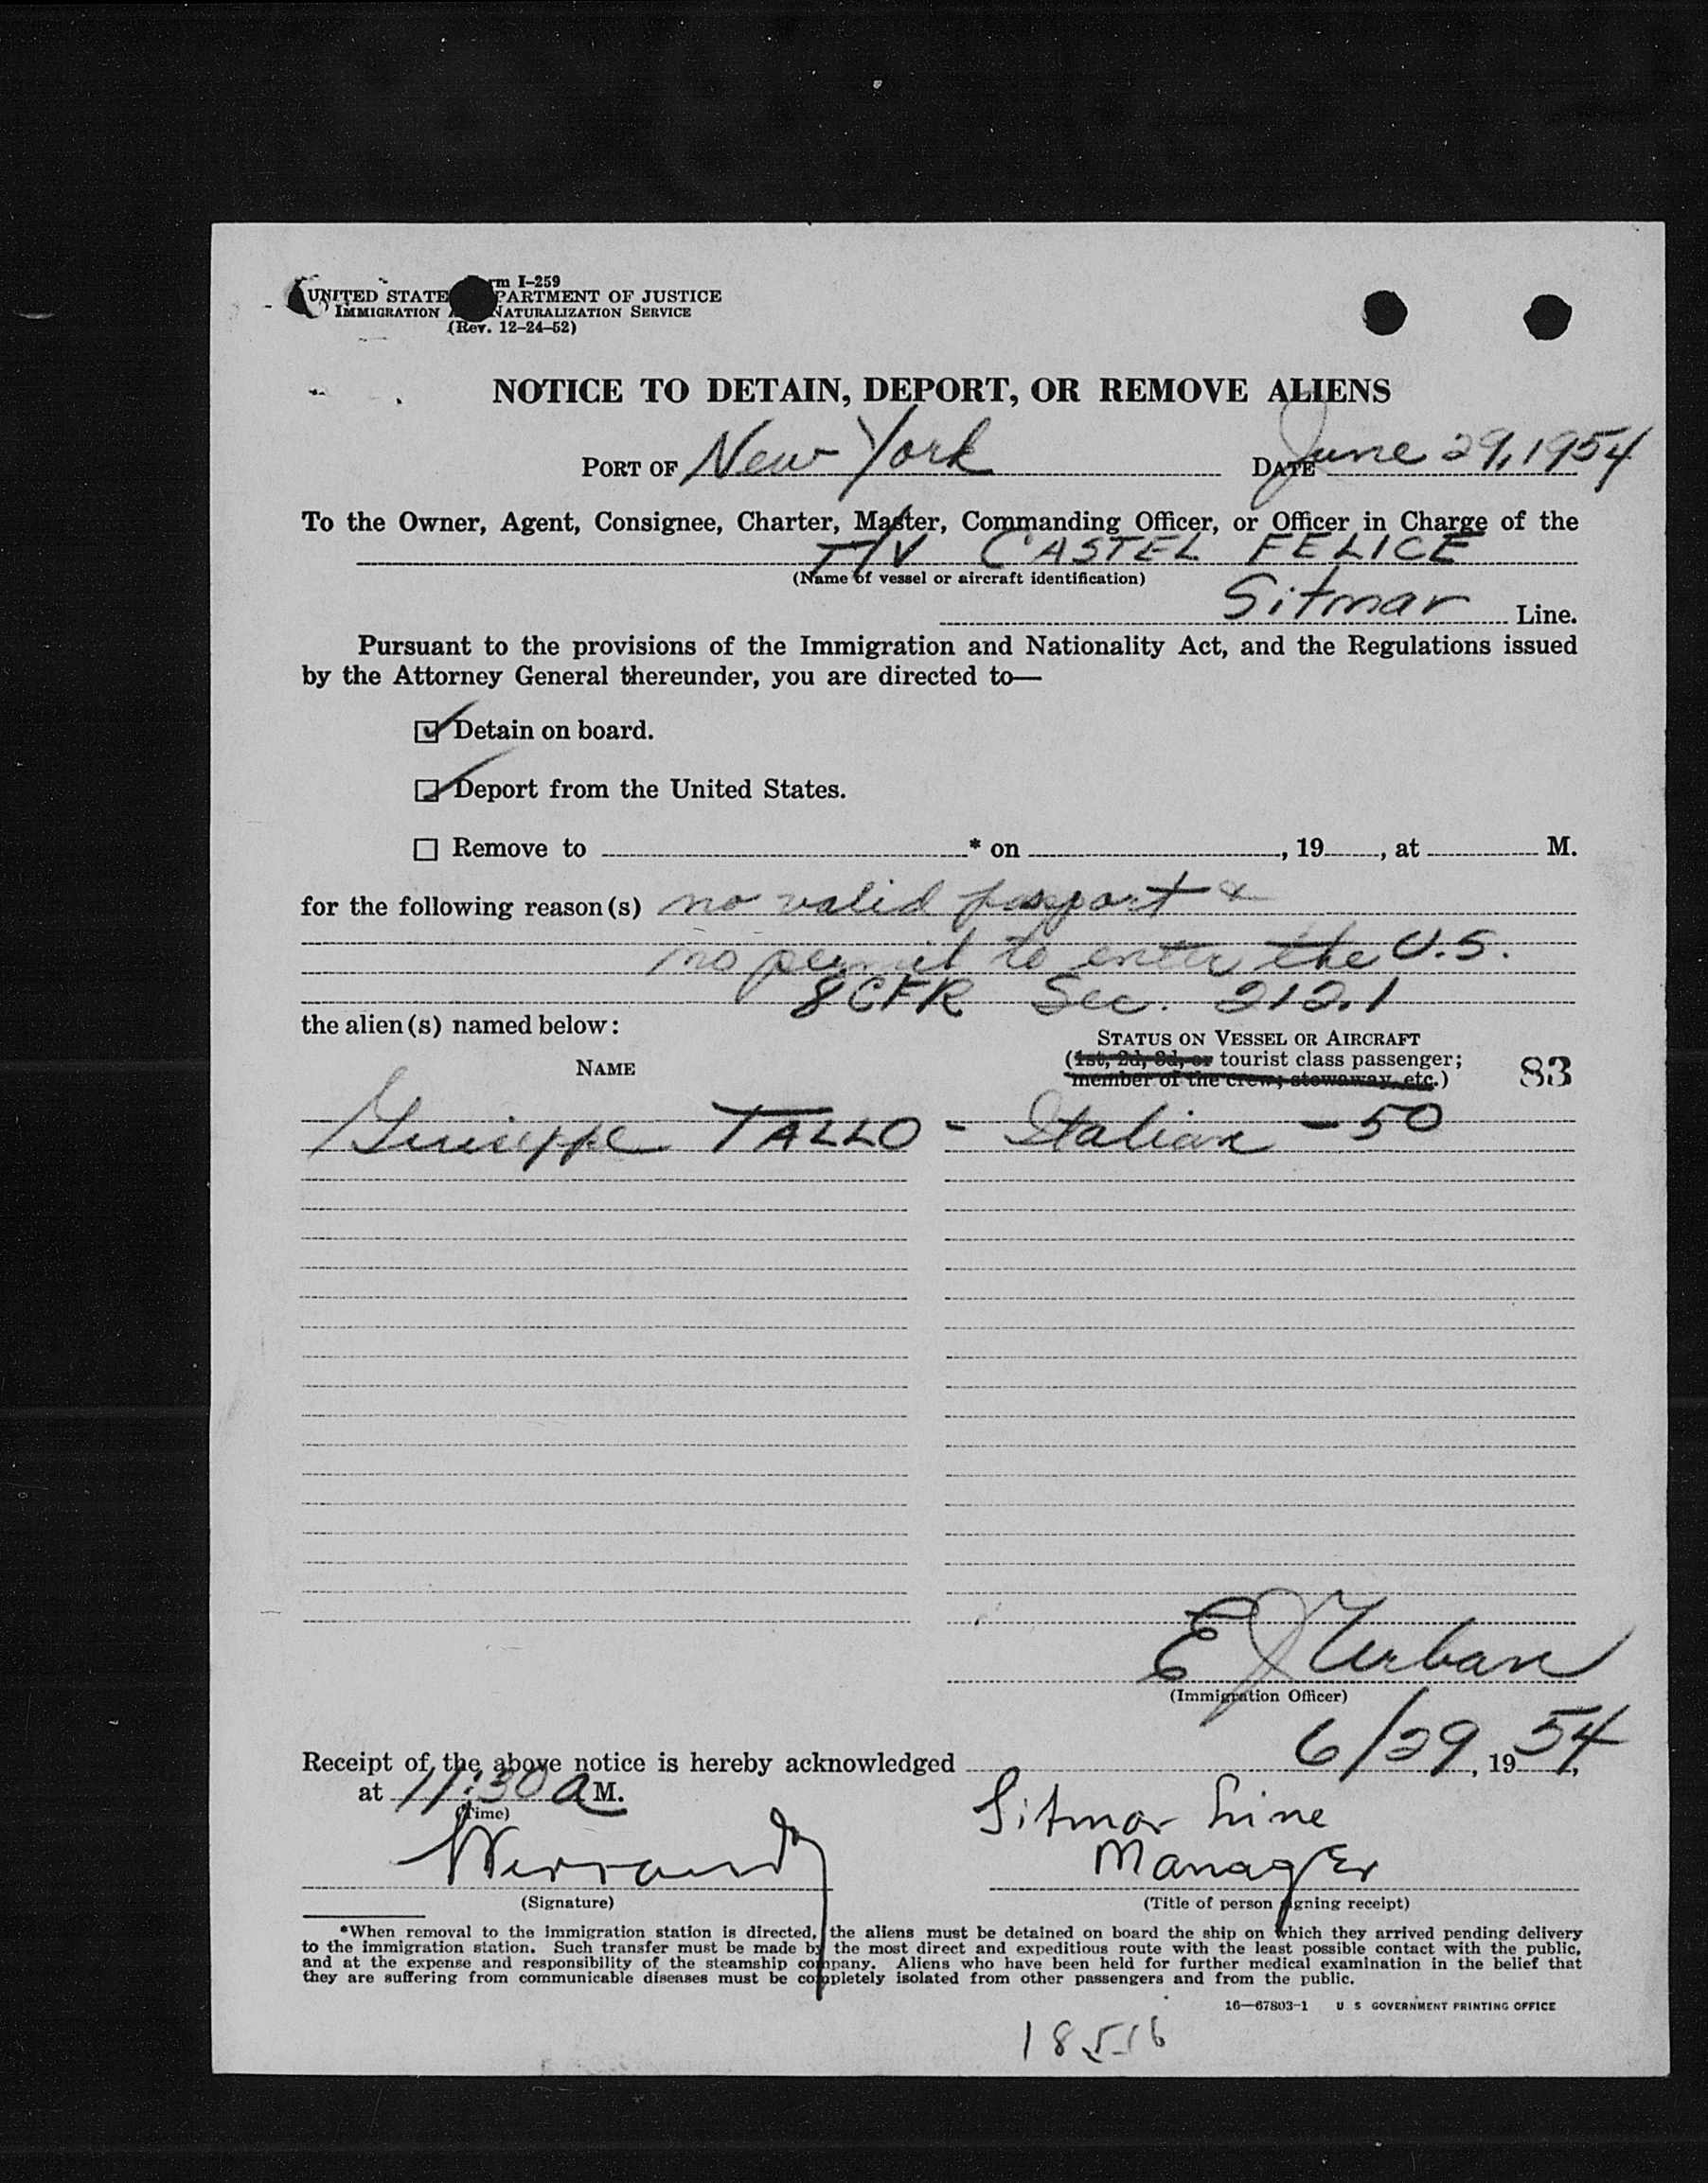 Form I-259
UNITED STATES DEPARTMENT OF JUSTICE
IMMIGRATION AND NATURALIZATION SERVICE
(Rev. 12-24-52)
NOTICE TO DETAIN, DEPORT, OR REMOVE ALIENS
PORT OF New York DATE June 29, 1954
To the Owner, Agent, Consignee, Charter, Master, Commanding Officer, or Officer in Charge of the
T/V CASTEL FELICE
(Name of vessel or aircraft identification)
Sitmar Line.
Pursuant to the provisions of the Immigration and Nationality Act, and the Regulations issued
by the Attorney General thereunder, you are directed to—
☑ Detain on board.
☑ Deport from the United States.
☐ Remove to * on , 19 , at M.
for the following reason(s) no valid passport &
no permit to enter the U.S.
8 CFR Sec. 212.1
the alien(s) named below:
STATUS ON VESSEL OR AIRCRAFT
NAME (1st, 2d, 3d, or tourist class passenger;
member of the crew; stowaway, etc.) 83
Giuseppe TALLO - Italian - 50
E J Urban
(Immigration Officer)
Receipt of the above notice is hereby acknowledged 6/29, 1954,
at 11:30 A M.
(Time)
Sitmar Line
Manager
(Signature) (Title of person signing receipt)
*When removal to the immigration station is directed, the aliens must be detained on board the ship on which they arrived pending delivery
to the immigration station. Such transfer must be made by the most direct and expeditious route with the least possible contact with the public,
and at the expense and responsibility of the steamship company. Aliens who have been held for further medical examination in the belief that
they are suffering from communicable diseases must be completely isolated from other passengers and from the public.
16—67803-1 U S GOVERNMENT PRINTING OFFICE
18516